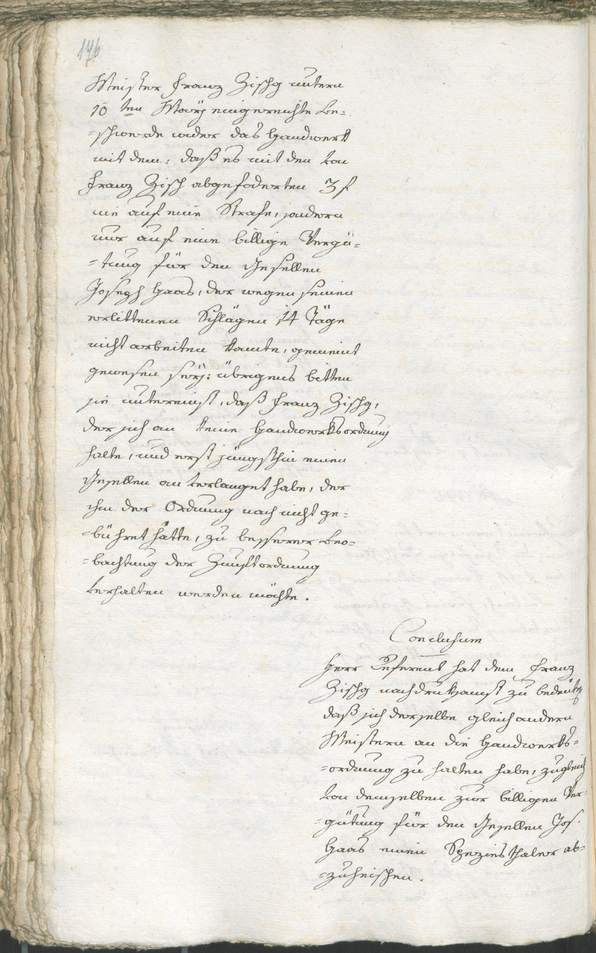 176
Meister Franz Zischg unterm
10 ten Marz eingereichte Be-
-schwerde wider das Handwerk
mit dem, daß es mit den von
Franz Zisch abgefoderten 3 f
nie auf eine Strafe, sondern
nur auf eine billige Vergü-
-tung für den Gesellen
Joseph Haas, der wegen seinen
erlittenen Schlägen 14 Täge
nicht arbeiten konnte, gemeint
gewesen seÿ: übrigens bitten
sie untereinst, daß Franz Zischg,
der sich an keine Handwerksordnung
halte, und erst jüngsthin einen
Gesellen an verlanget habe, der
ihm der Ordnung nach nicht ge-
-bühret hätte, zu besserer Beo-
-bachtung der Zunftordnung
verhalten werden möchte.
Conclusum
Herr Referent hat dem Franz
Zischg nachdruksamst zu bedeuten
daß sich derselbe gleich andern
Meistern an die Handwerks-
-ordnung zu halten habe, zugleich
von demselben zur billigen Ver-
gütung für den Gesellen Jos.
Haas einen Speziesthaler ab-
-zuheischen.